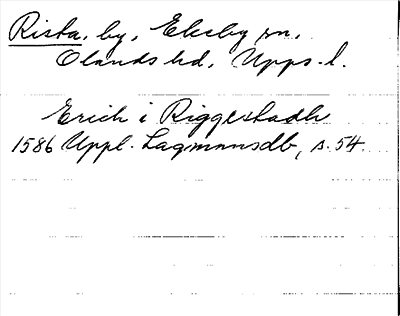 Rista, by, Ekeby sn,
Olands hd, Upps. l.
Erich i Riggestadh
1586 Uppl. Lagmansdb, s. 54